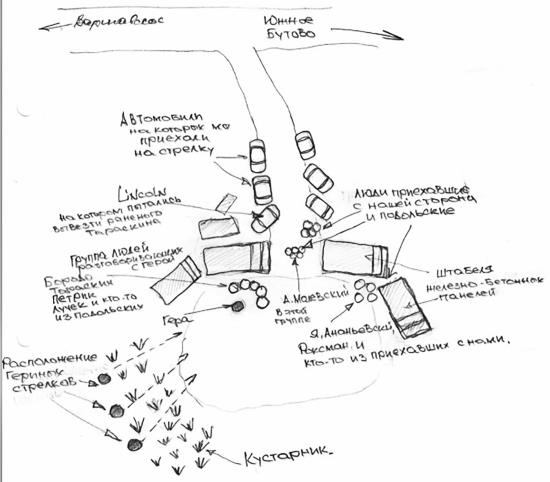 Варшавское
Южное
Бутово
Автомобили
на которых мы
приехали
на стрелку
Lincoln
на котором пытались
вывезти раненого
Тараскина
Люди приехавшие
с нашей стороны
и подольские
Группа людей
разговаривающих
с Герой
Бородо
Тараскин
Петрик
Лучек и кто-то
из подольских
Гера
А. Маевский
в этой
группе
штабеля
железно-бетонных
панелей
Я, Ананьевский,
Роксман и
кто-то из приехавших с нами.
Расположение
Гериных
стрелков
Кустарник.